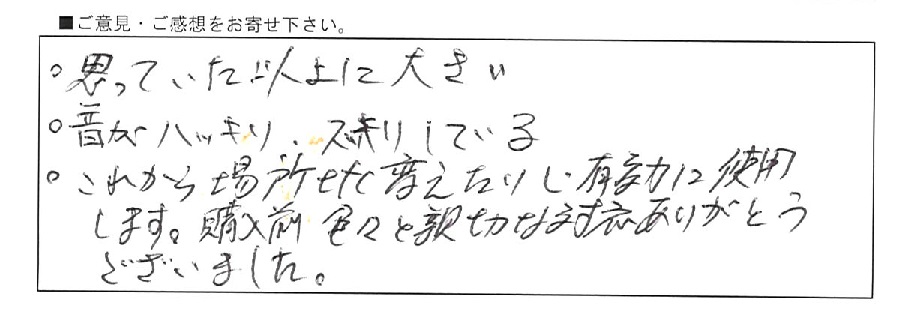 ■ご意見・ご感想をお寄せ下さい。
○思っていた以上に大きい
○音がハッキリ、スッキリしている
○これから場所etc変えたりし有効に使用
します。購入前色々と親切な対応ありがとう
ございました。